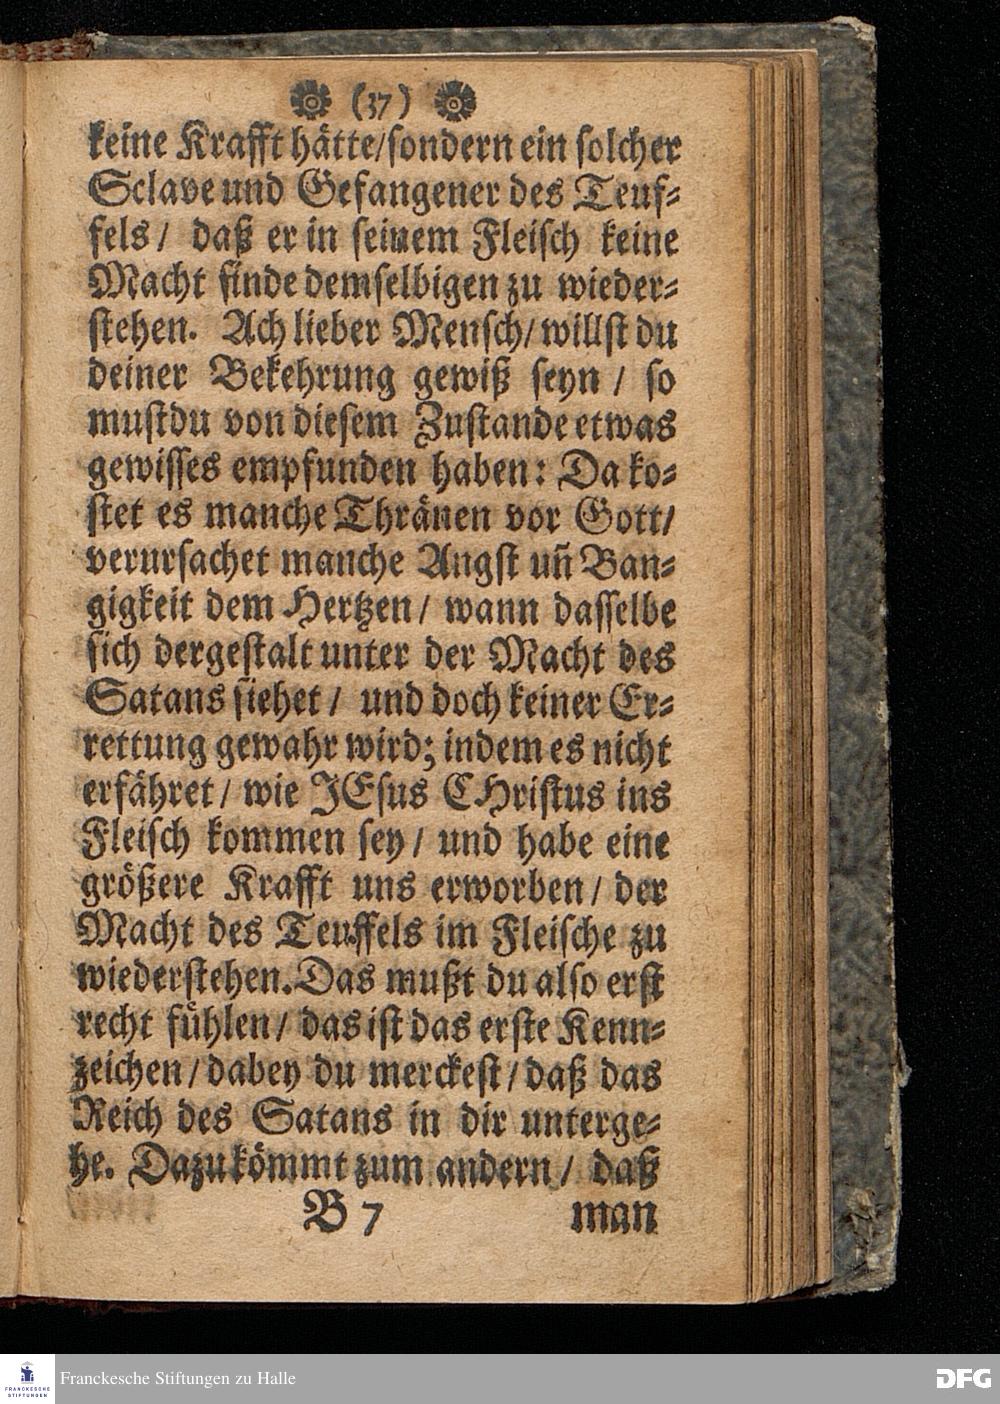 (37)
keine Krafft hätte/sondern ein solcher
Sclave und Gefangener des Teuf-
fels/ daß er in seinem Fleisch keine
Macht finde demselbigen zu wieder-
stehen. Ach lieber Mensch/willst du
deiner Bekehrung gewiß seyn/ so
mustdu von diesem Zustande etwas
gewisses empfunden haben: Da ko-
stet es manche Thränen vor Gott/
verursachet manche Angst uñ Ban-
gigkeit dem Hertzen/ wann dasselbe
sich dergestalt unter der Macht des
Satans siehet/ und doch keiner Er-
rettung gewahr wird; indem es nicht
erfähret/ wie JEsus CHristus ins
Fleisch kommen sey/ und habe eine
größere Krafft uns erworben/ der
Macht des Teuffels im Fleische zu
wiederstehen. Das mußt du also erst
recht fühlen/ das ist das erste Kenn-
zeichen/dabey du merckest/daß das
Reich des Satans in dir unterge-
he. Dazu kömmt zum andern/ daß
B 7 man
FRANCKESCHE
STIFTUNGEN
Franckesche Stiftungen zu Halle
DFG